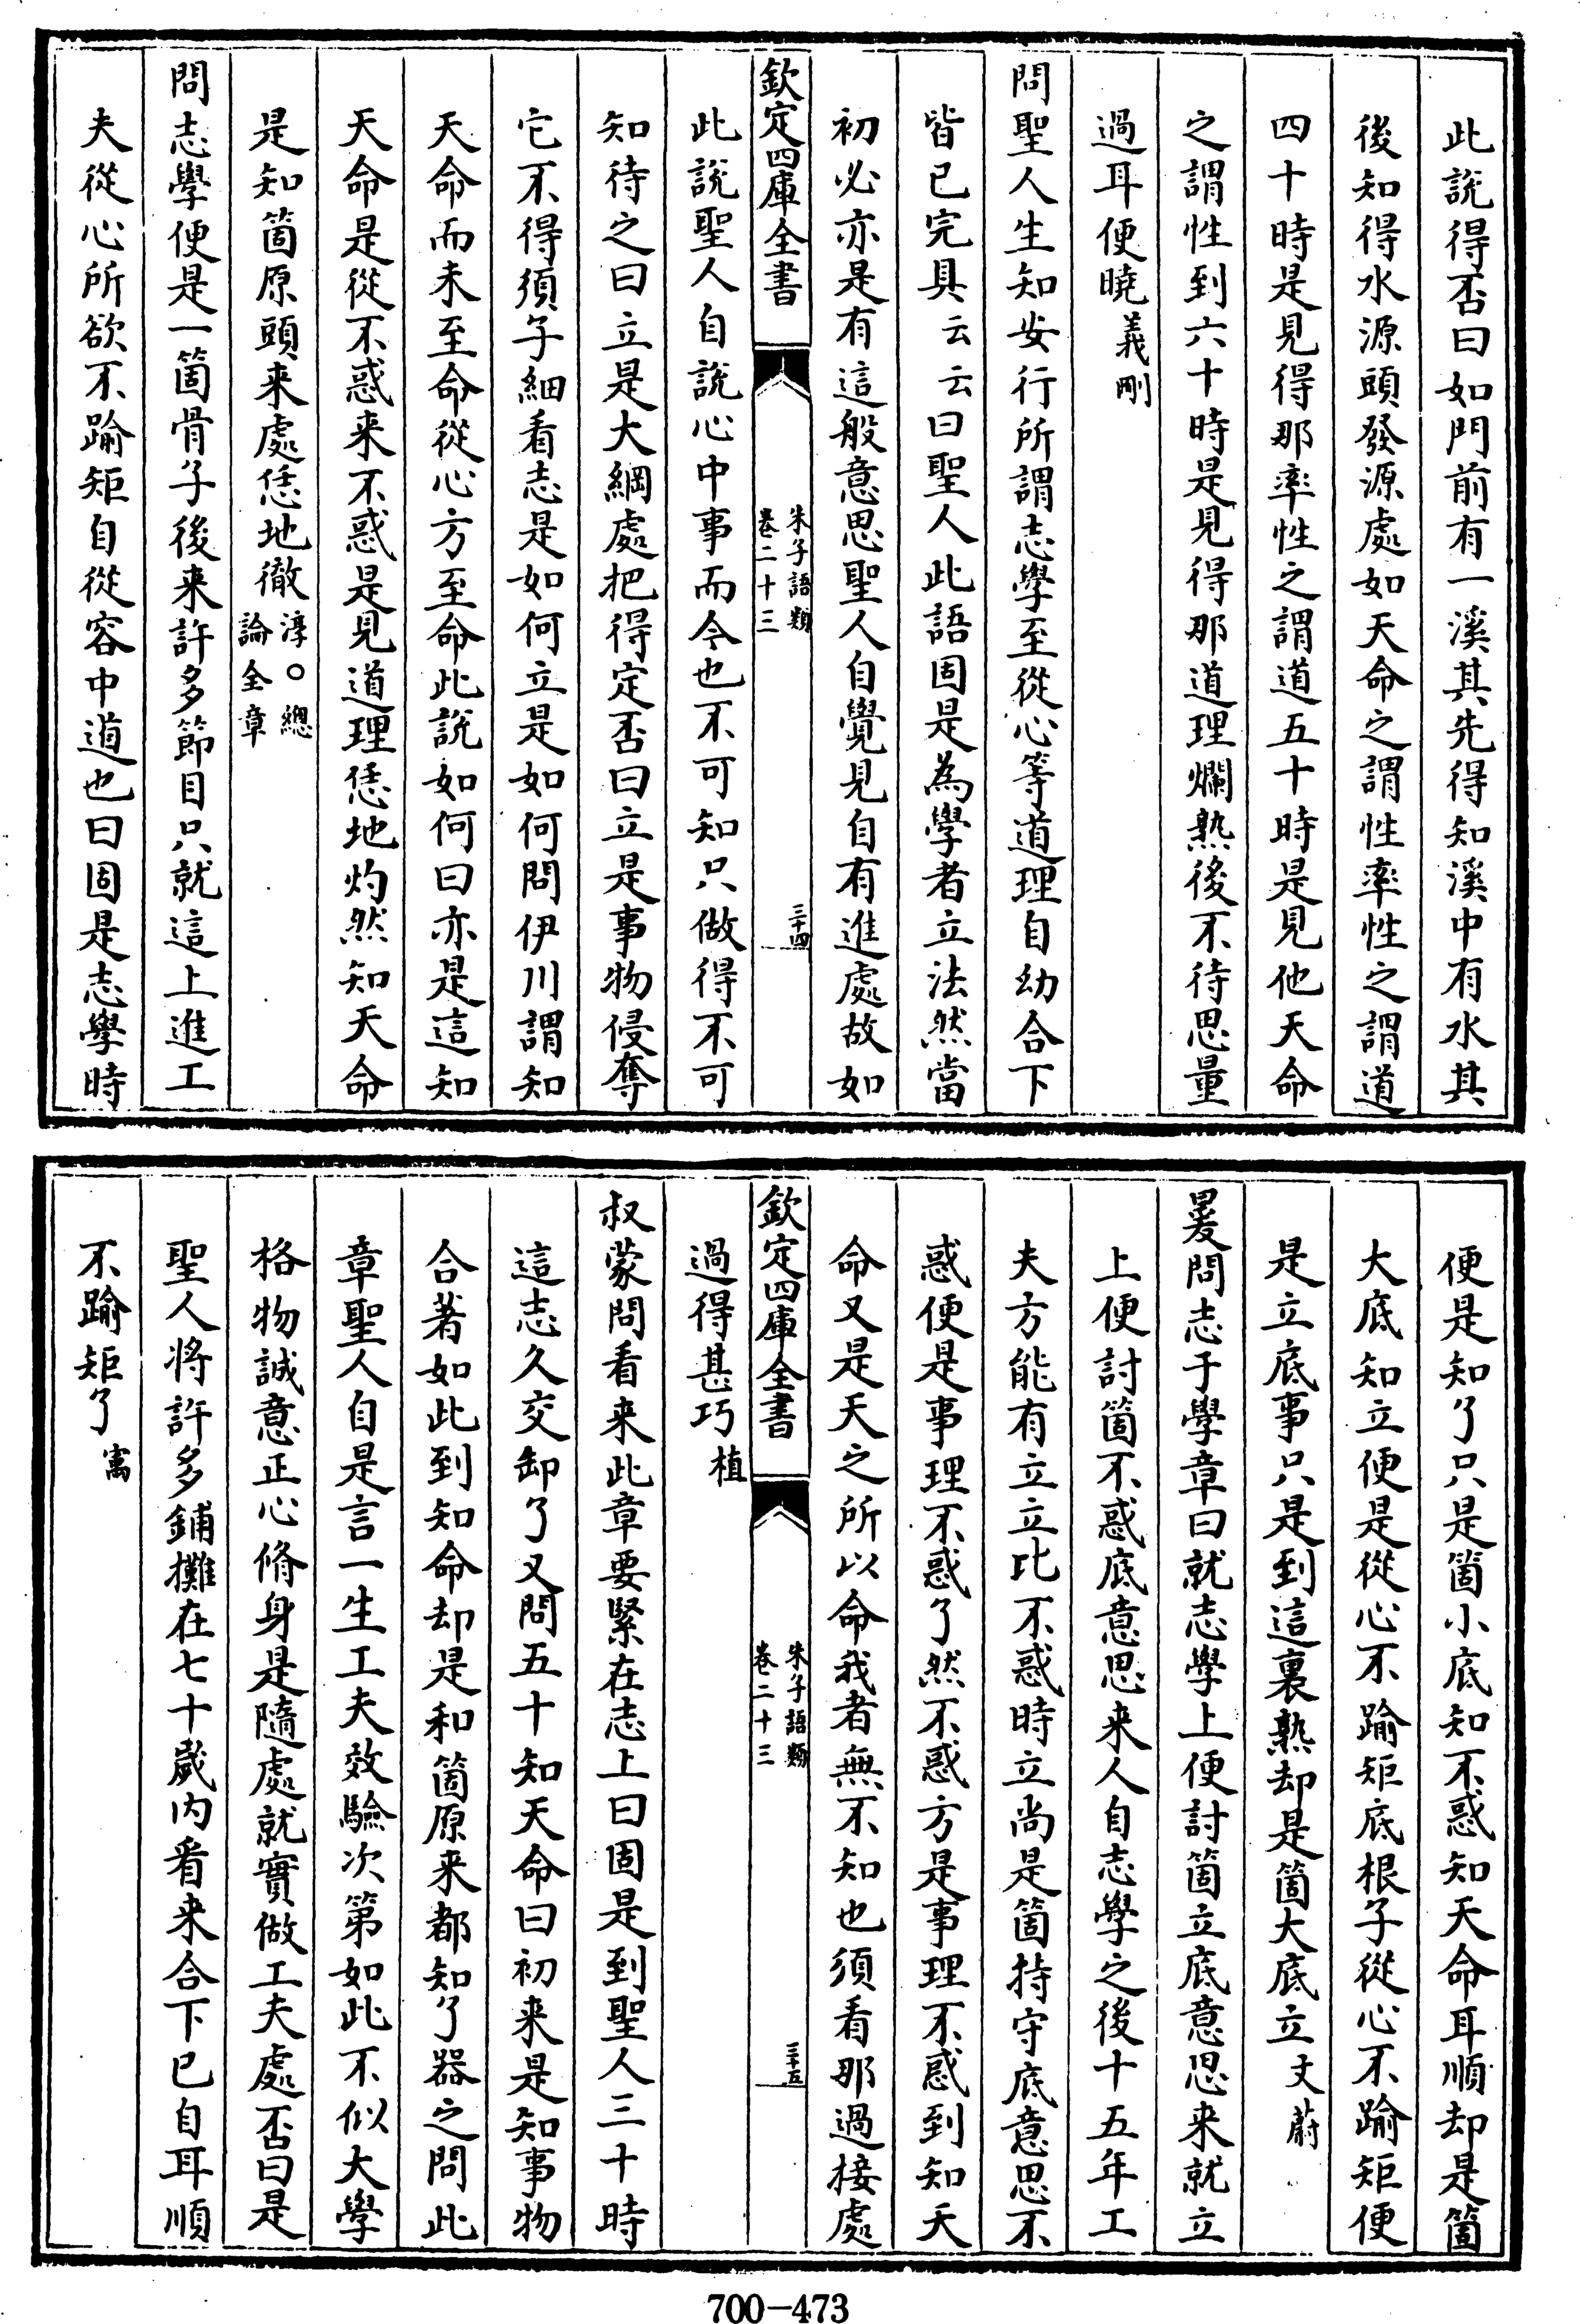 此說得否曰如門前有一溪其先得知溪中有水其
後知得水源頭發源處如天命之謂性率性之謂道
四十時是見得那率性之謂道五十時是見他天命
之謂性到六十時是見得那道理爛熟後不待思量
過耳便曉義剛
問聖人生知安行所謂志學至從心等道理自幼合下
皆已完具云云曰聖人此語固是為學者立法然當
初必亦是有這般意思聖人自覺見自有進處故如
欽定四庫全書
朱子語類
卷二十三
三十四
此說聖人自說心中事而今也不可知只做得不可
知待之曰立是大綱處把得定否曰立是事物侵奪
它不得須子細看志是如何立是如何問伊川謂知
天命而未至命從心方至命此說如何曰亦是這知
天命是從不惑来不惑是見道理恁地灼然知天命
是知箇原頭来處恁地徹淳○總
論全章
問志學便是一箇骨子後来許多節目只就這上進工
夫從心所欲不踰矩自從容中道也曰固是志學時
便是知了只是箇小底知不惑知天命耳順却是箇
大底知立便是從心不踰矩底根子從心不踰矩便
是立底事只是到這裏熟却是箇大底立文蔚
㬊問志于學章曰就志學上便討箇立底意思来就立
上便討箇不惑底意思来人自志學之後十五年工
夫方能有立立比不惑時立尚是箇持守底意思不
惑便是事理不惑了然不惑方是事理不惑到知天
命又是天之所以命我者無不知也須看那過接處
欽定四庫全書
朱子語類
卷二十三
三十五
過得甚巧植
叔蒙問看来此章要緊在志上曰固是到聖人三十時
這志久交卸了又問五十知天命曰初来是知事物
合著如此到知命却是和箇原来都知了器之問此
章聖人自是言一生工夫效驗次第如此不似大學
格物誠意正心脩身是隨處就實做工夫處否曰是
聖人將許多鋪攤在七十歲內看来合下已自耳順
不踰矩了㝢
700-473